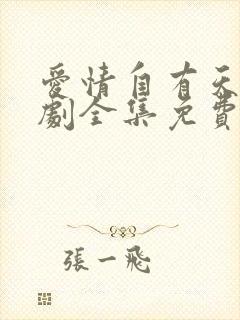 愛情自有天
劇全集免費
張一飛